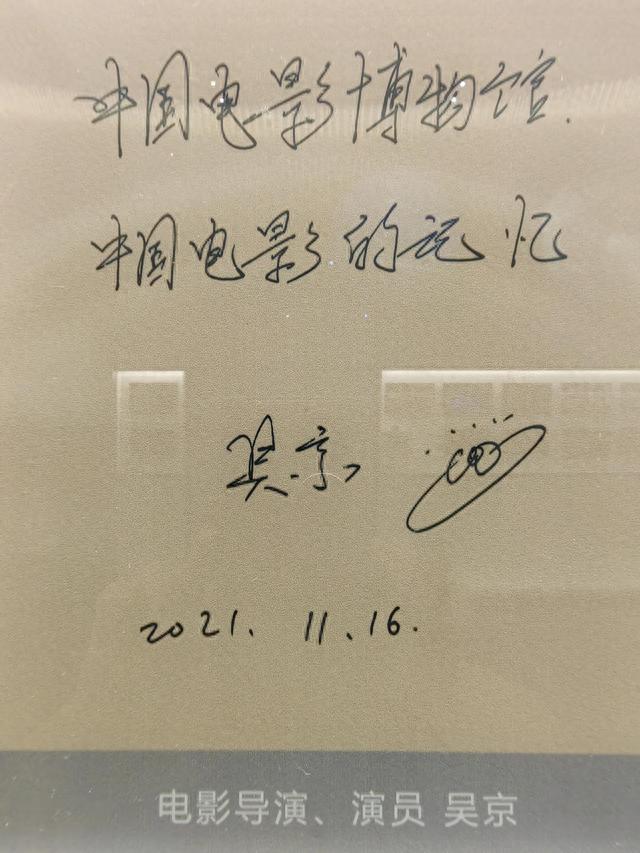 中国电影博物馆.
中国电影的记忆
吴京
2021. 11.16.
电影导演、演员 吴京